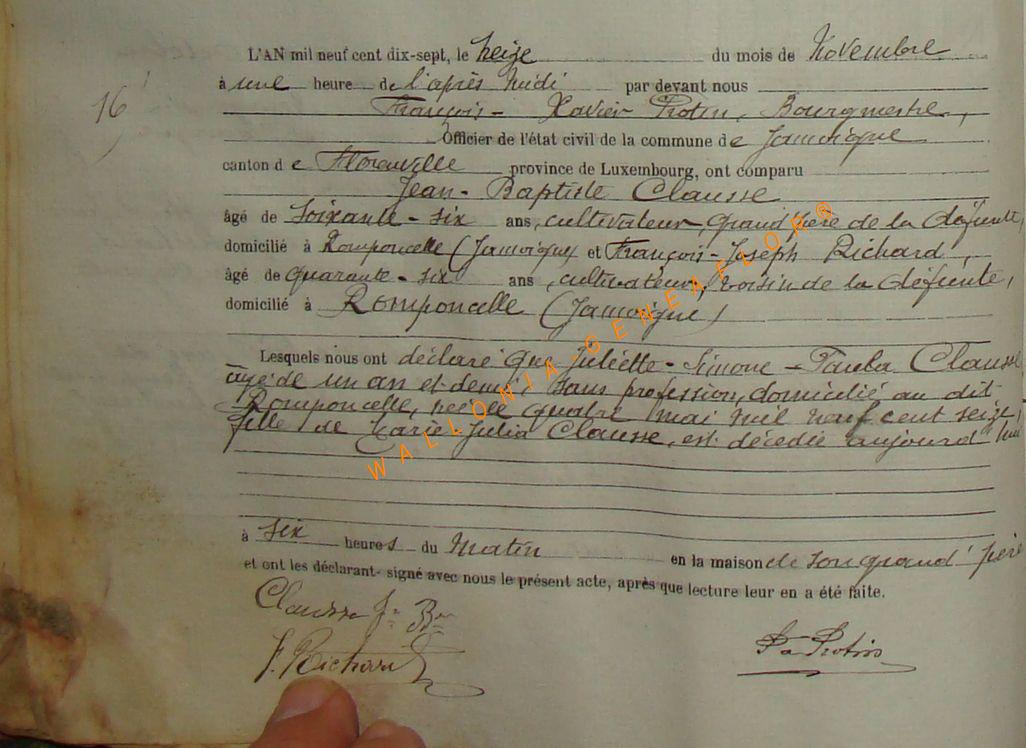 16
L'AN mil neuf cent dix-sept, le seize du mois de Novembre
à une heure de l'après midi par devant nous
François-Xavier Protin, Bourgmestre,
Officier de l'état civil de la commune de Jamoigne
canton de Florenville province de Luxembourg, ont comparu
Jean-Baptiste Clausse
âgé de soixante-six ans, cultivateur, grand'père de la défunte,
domicilié à Romponcelle (Jamoigne) et François-Joseph Richard,
âgé de quarante-six ans, cultivateur, voisin de la défunte,
domicilié à Romponcelle (Jamoigne)
Lesquels nous ont déclaré que Juliette-Simone-Paula Clausse
âgé de un an et demi, sans profession, domicilié au dit
Romponcelle, née le quatre mai mil neuf cent seize,
fille de Marie Julia Clausse, est décédée aujourd'hui
à six heures du matin en la maison de son grand'père
et ont les déclarant- signé avec nous le présent acte, après que lecture leur en a été faite.
Clausse J. Bte
F. Richard
Protin
WALLONIA-GENEAFLOR®